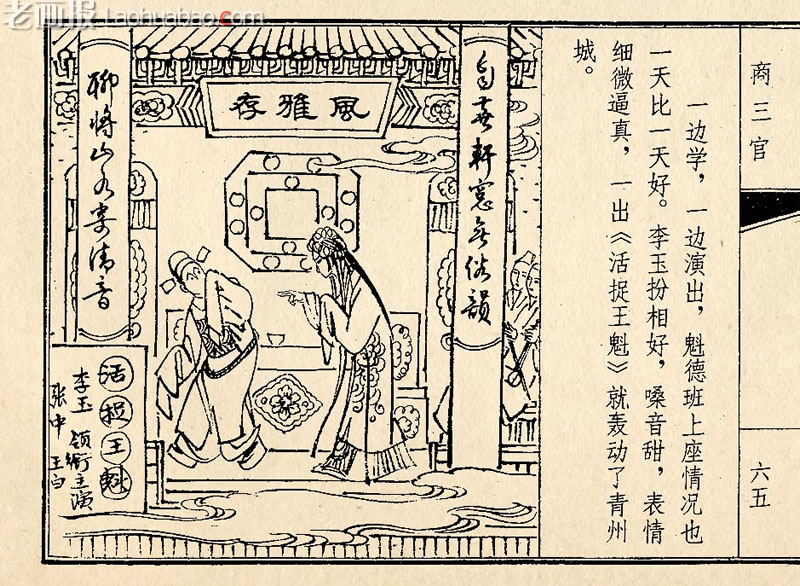 老画报 Laohuabao.com
商三官
六五
一边学，一边演出，魁德班上座情况也
一天比一天好。李玉扮相好，嗓音甜，表情
细微逼真，一出《活捉王魁》就轰动了青州
城。
風雅存
自喜軒窓无俗韻
聊将山水寄清音
活捉王魁
李玉 领衔主演
张中 王白